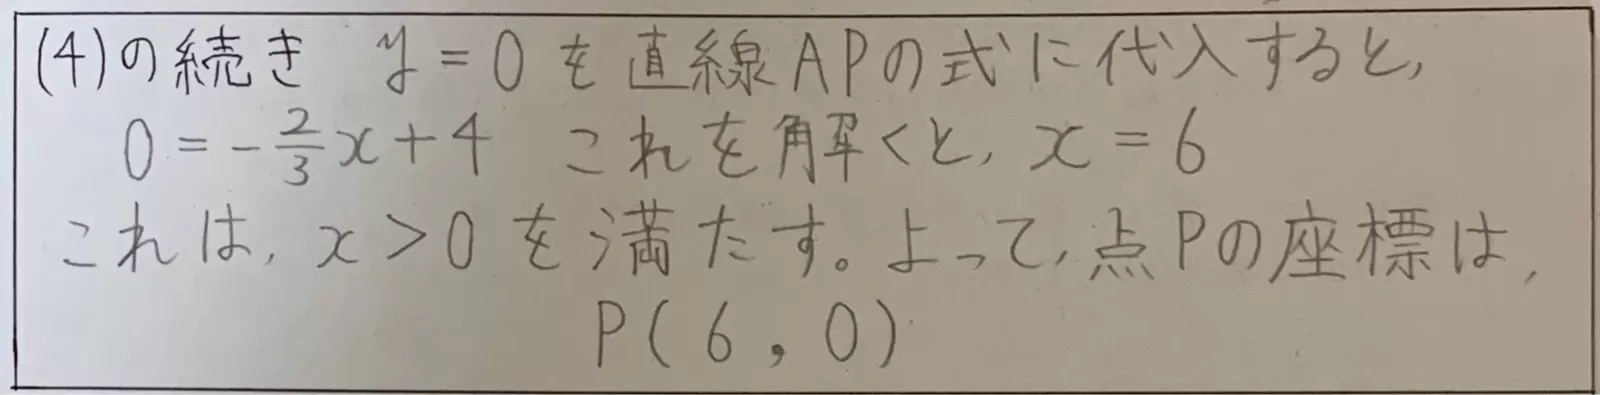 (4)の続き y=0を直線APの式に代入すると,
0=-2/3x+4 これを解くと, x=6
これは, x>0を満たす。よって, 点Pの座標は,
P(6,0)